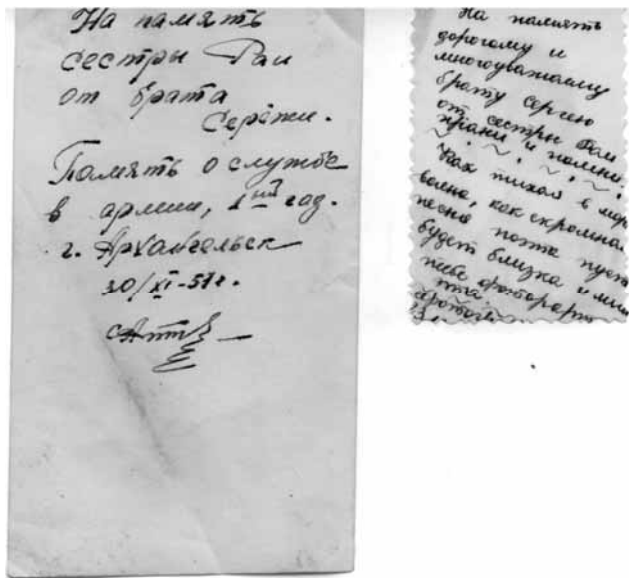 На память
сестры Раи
от брата
Сережи.
Память о службе
в армии, 1ый год.
г. Архангельск
30/XI-51г.
На память
дорогому и
многоуважаемому
брату Сергею
от сестры Раи
храни и помни.
Как тихая в море
волна, как скромная
песня поэта пусть
будет близка и мила
тебе